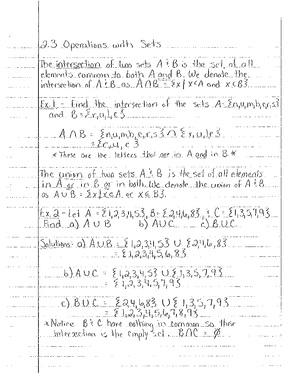 2.3 Operations with Sets
The intersection of two sets A & B is the set of all
elements common to both A and B. We denote the
intersection of A & B as A∩B = {x | x∈A and x∈B}.
Ex. 1 - Find the intersection of the sets A={n,u,m,b,e,r,s}
and B={r,u,l,e}
A∩B = {n,u,m,b,e,r,s} ∩ {r,u,l,e}
= {r,u,e}
* These are the letters that are in A and in B *
The union of two sets A & B is the set of all elements
in A or in B or in both. We denote the union of A & B
as A∪B = {x | x∈A or x∈B}.
Ex. 2 - Let A = {1,2,3,4,5}, B={2,4,6,8}, & C={1,3,5,7,9}
Find a) A∪B b) A∪C c) B∪C
Solutions: a) A∪B = {1,2,3,4,5} ∪ {2,4,6,8}
= {1,2,3,4,5,6,8}
b) A∪C = {1,2,3,4,5} ∪ {1,3,5,7,9}
= {1,2,3,4,5,7,9}
c) B∪C = {2,4,6,8} ∪ {1,3,5,7,9}
= {1,2,3,4,5,6,7,8,9}
* Notice B & C have nothing in common so their
intersection is the empty set. B∩C = ∅